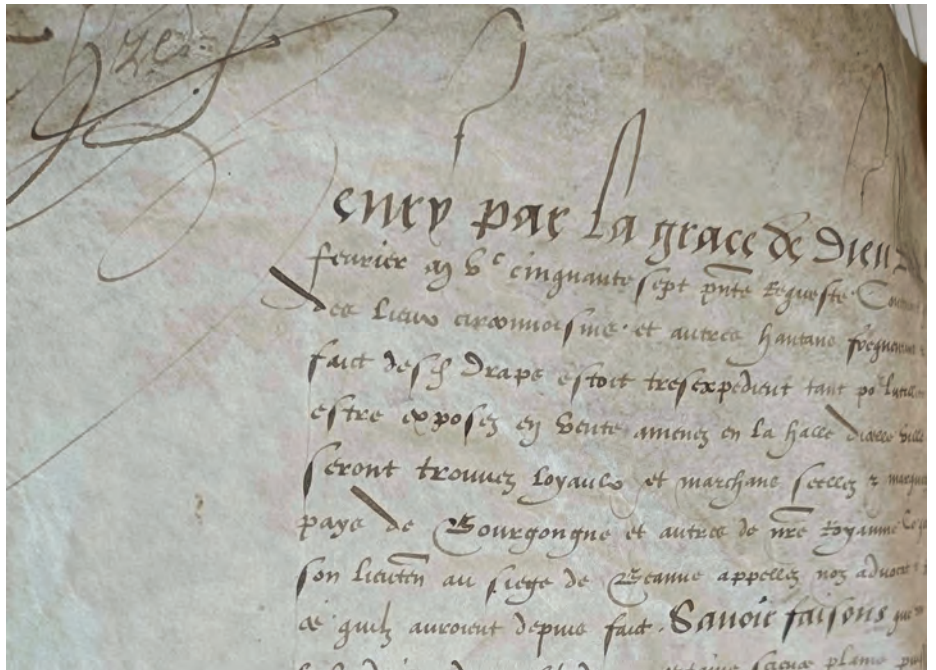 enry par la grace de dieu
fevrier mil vc cinquante sept pnte Requeste
des lieux circonvoisins. et autres hantans frequentans
faict desd draps estoit tresexpedient tant po lutilite
estre exposez en vente amenez en la halle dicelle ville
seront trouvez loyaulx et marchans scellez & marquez
pays de Bourgongne et autres de nre Royaume
son lieuten au siege de Beaune appellez noz advocat
ce quilz auroient depuis faict. Savoir faisons que